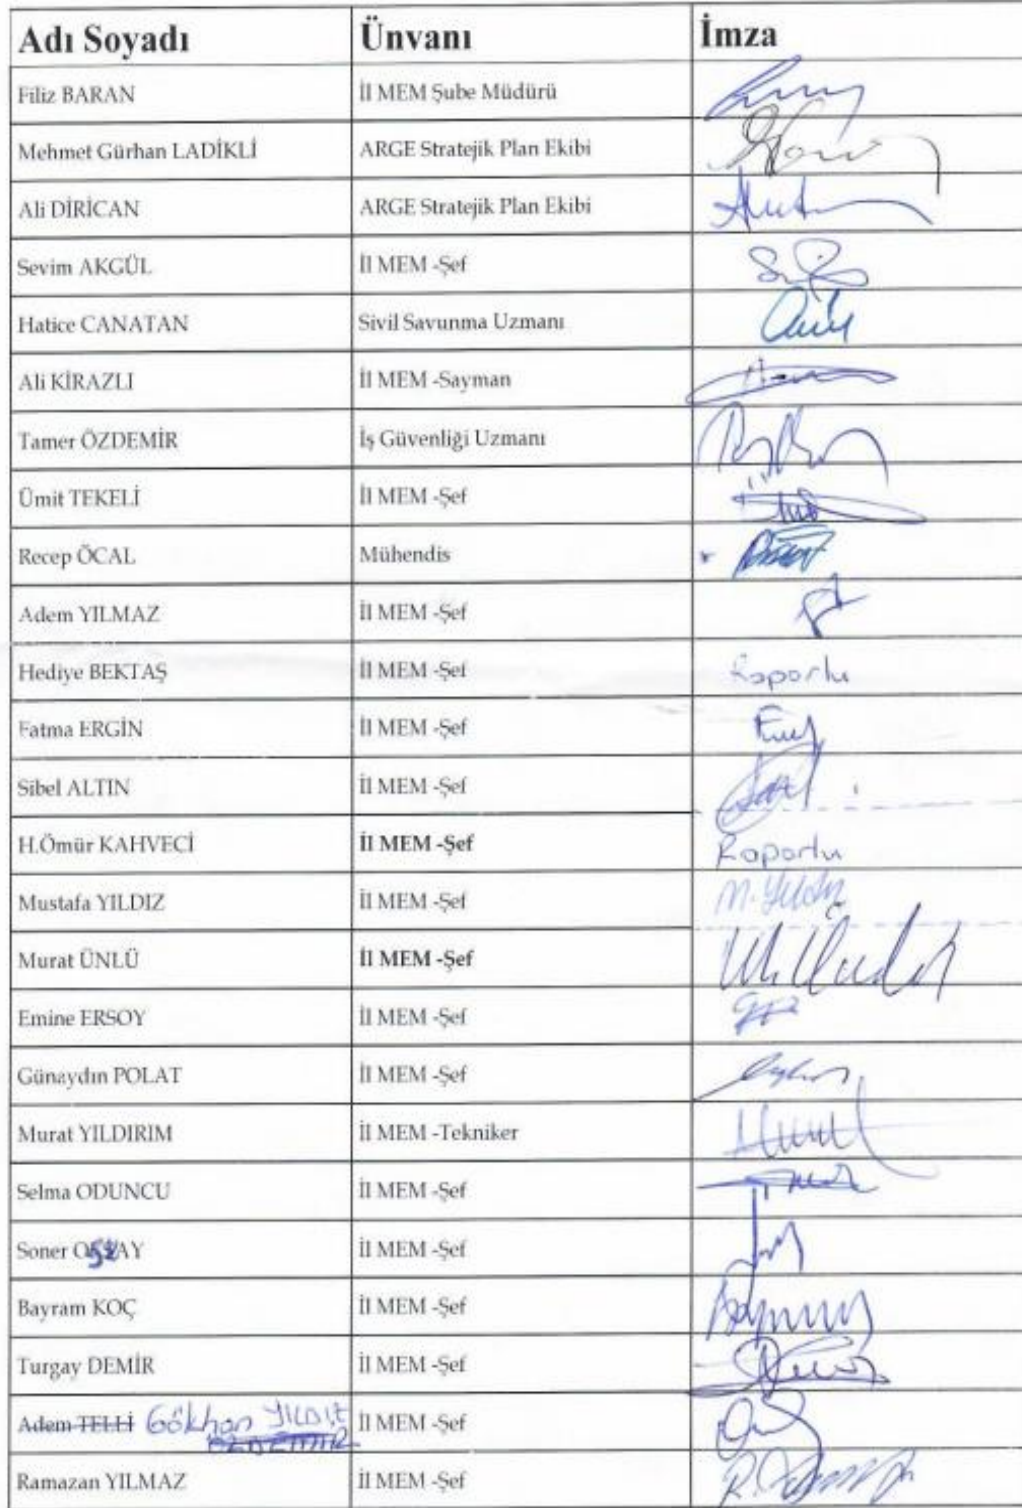 Adı Soyadı Ünvanı İmza
Filiz BARAN İl MEM Şube Müdürü
Mehmet Gürhan LADİKLİ ARGE Stratejik Plan Ekibi
Ali DİRİCAN ARGE Stratejik Plan Ekibi
Sevim AKGÜL İl MEM -Şef
Hatice CANATAN Sivil Savunma Uzmanı
Ali KİRAZLI İl MEM -Sayman
Tamer ÖZDEMİR İş Güvenliği Uzmanı
Ümit TEKELİ İl MEM -Şef
Recep ÖCAL Mühendis
Adem YILMAZ İl MEM -Şef
Hediye BEKTAŞ İl MEM -Şef Raporlu
Fatma ERGİN İl MEM -Şef
Sibel ALTIN İl MEM -Şef
H.Ömür KAHVECİ İl MEM -Şef Raporlu
Mustafa YILDIZ İl MEM -Şef M. Yıldız
Murat ÜNLÜ İl MEM -Şef
Emine ERSOY İl MEM -Şef
Günaydın POLAT İl MEM -Şef
Murat YILDIRIM İl MEM -Tekniker
Selma ODUNCU İl MEM -Şef
Soner İl MEM -Şef
Bayram KOÇ İl MEM -Şef
Turgay DEMİR İl MEM -Şef
Adem TELLİ Gökhan YILDIZ İl MEM -Şef
ÖZDEMİR
Ramazan YILMAZ İl MEM -Şef